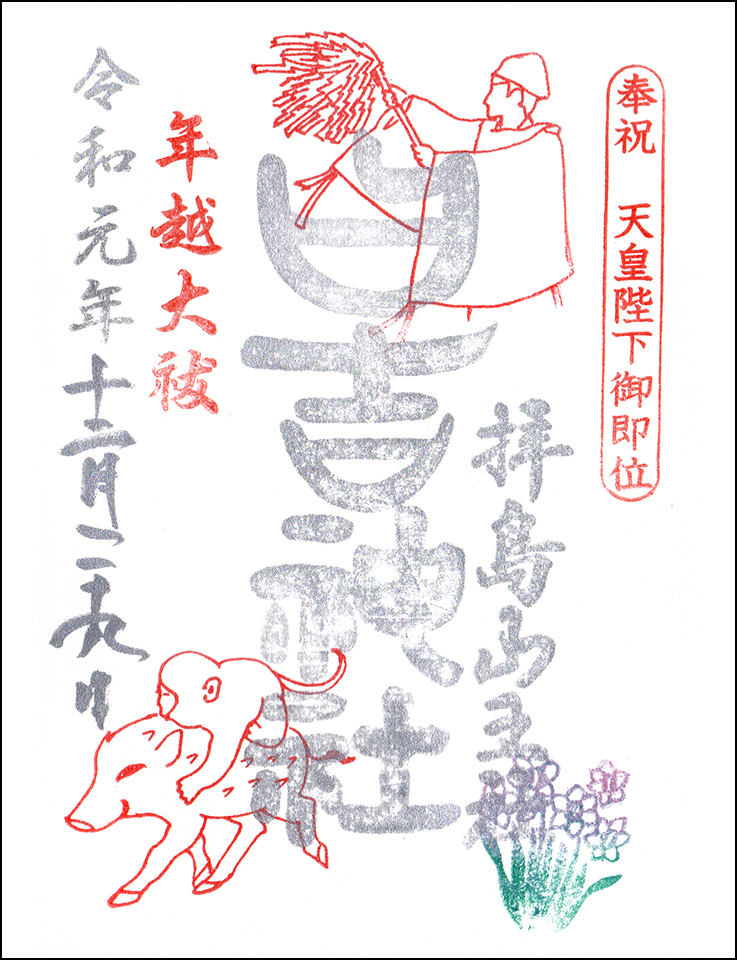 奉祝 天皇陛下御即位
拝島山王
日吉神社
年越大祓
令和元年十二月二十九日